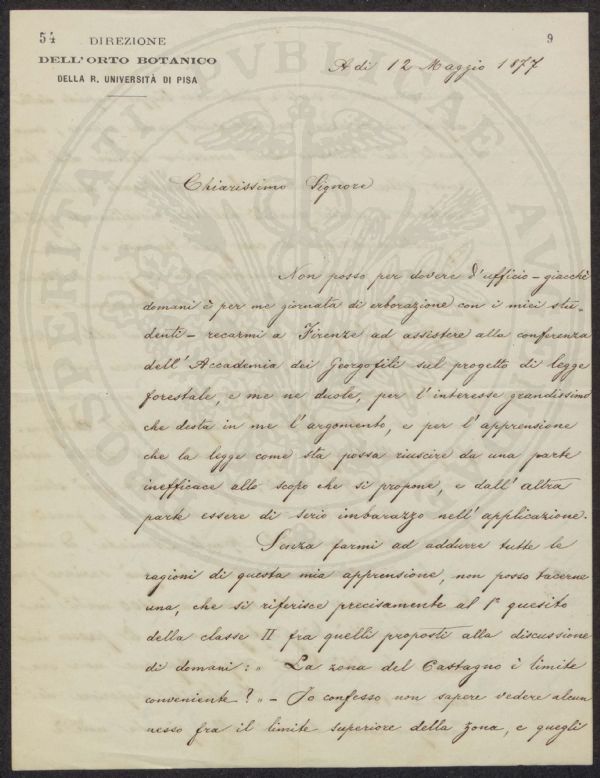 54
9
DIREZIONE
DELL'ORTO BOTANICO
DELLA R. UNIVERSITÀ DI PISA
A dì 12 Maggio 1877
Chiarissimo Signore
Non posso per dovere d'ufficio – giacchè
domani è per me giornata di erborazione con i miei stu-
denti – recarmi a Firenze ad assistere alla conferenza
dell'Accademia dei Georgofili sul progetto di legge
forestale, e me ne duole, per l'interesse grandissimo
che desta in me l'argomento, e per l'apprensione
che la legge come sta possa riuscire da una parte
inefficace allo scopo che si propone, e dall'altra
parte essere di serio imbarazzo nell'applicazione.
Senza farmi ad addurre tutte le
ragioni di questa mia apprensione, non posso tacerne
una, che si riferisce precisamente al 1º quesito
della classe II fra quelli proposti alla discussione
di domani: „ La zona del Castagno è limite
conveniente? „ – Io confesso non sapere vedere alcun
nesso fra il limite superiore della zona, e quegli